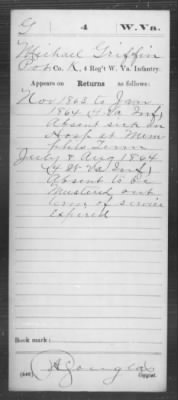 G | 4 | W. Va.
Michael Griffin
Pvt, Co. K, 4 Reg't W. Va. Infantry.
Appears on Returns as follows:
Nov 1863 to Jan
1864 (4 W Va Inf)
Absent sick in
Hosp at Mem
phis Tenn
July & Aug 1864
(4 W Va Inf)
Absent to be
Mustered out
term of service
Expired
Book mark:
(546)
Copyist.